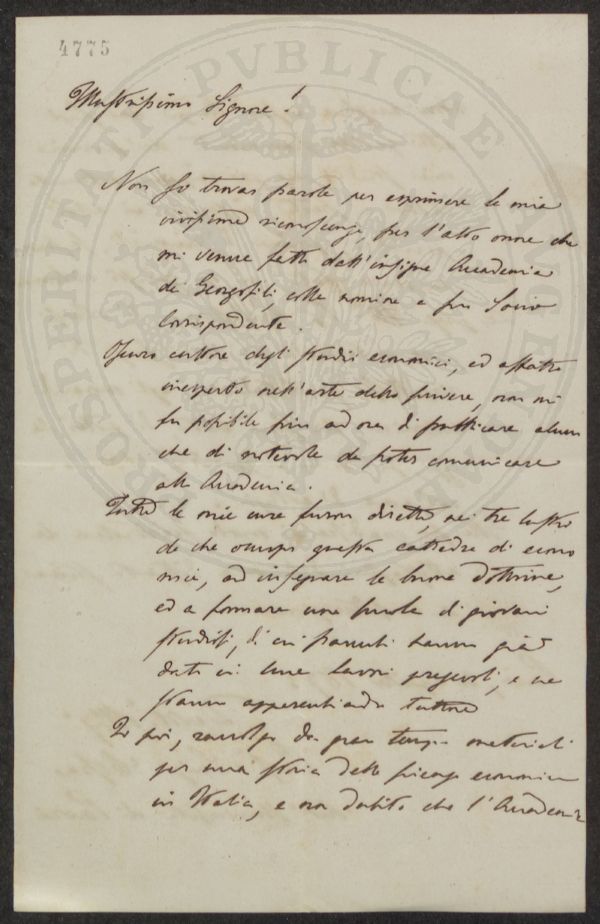 4775
PROSPERITATI PVBLICAE
Illustrissimo Signore!
Non so trovar parole per esprimere la mia
vivissima riconoscenza, per l'alto onore che
mi venne fatto dall'insigne Accademia
dei Georgofili, colla nomina a suo Socio
Corrispondente.
Oscuro cultore degli studii economici, ed affatto
inesperto nell'arte dello scrivere, non mi
fu possibile fino ad ora di pubblicare alcun
che di notevole da poter comunicare
alla Accademia.
Tutte le mie cure furono dirette, nei tre lustri
da che occupo questa cattedra di econo
mia, ad insegnare le buone dottrine,
ed a formare una scuola di giovani
studiosi, di cui parecchi hanno già
dato in luce lavori pregevoli, e ne
stanno apparecchiando tuttora
Io poi, raccolgo da gran tempo materiali
per una storia della scienza economica
in Italia, e non dubito che l'Accademia